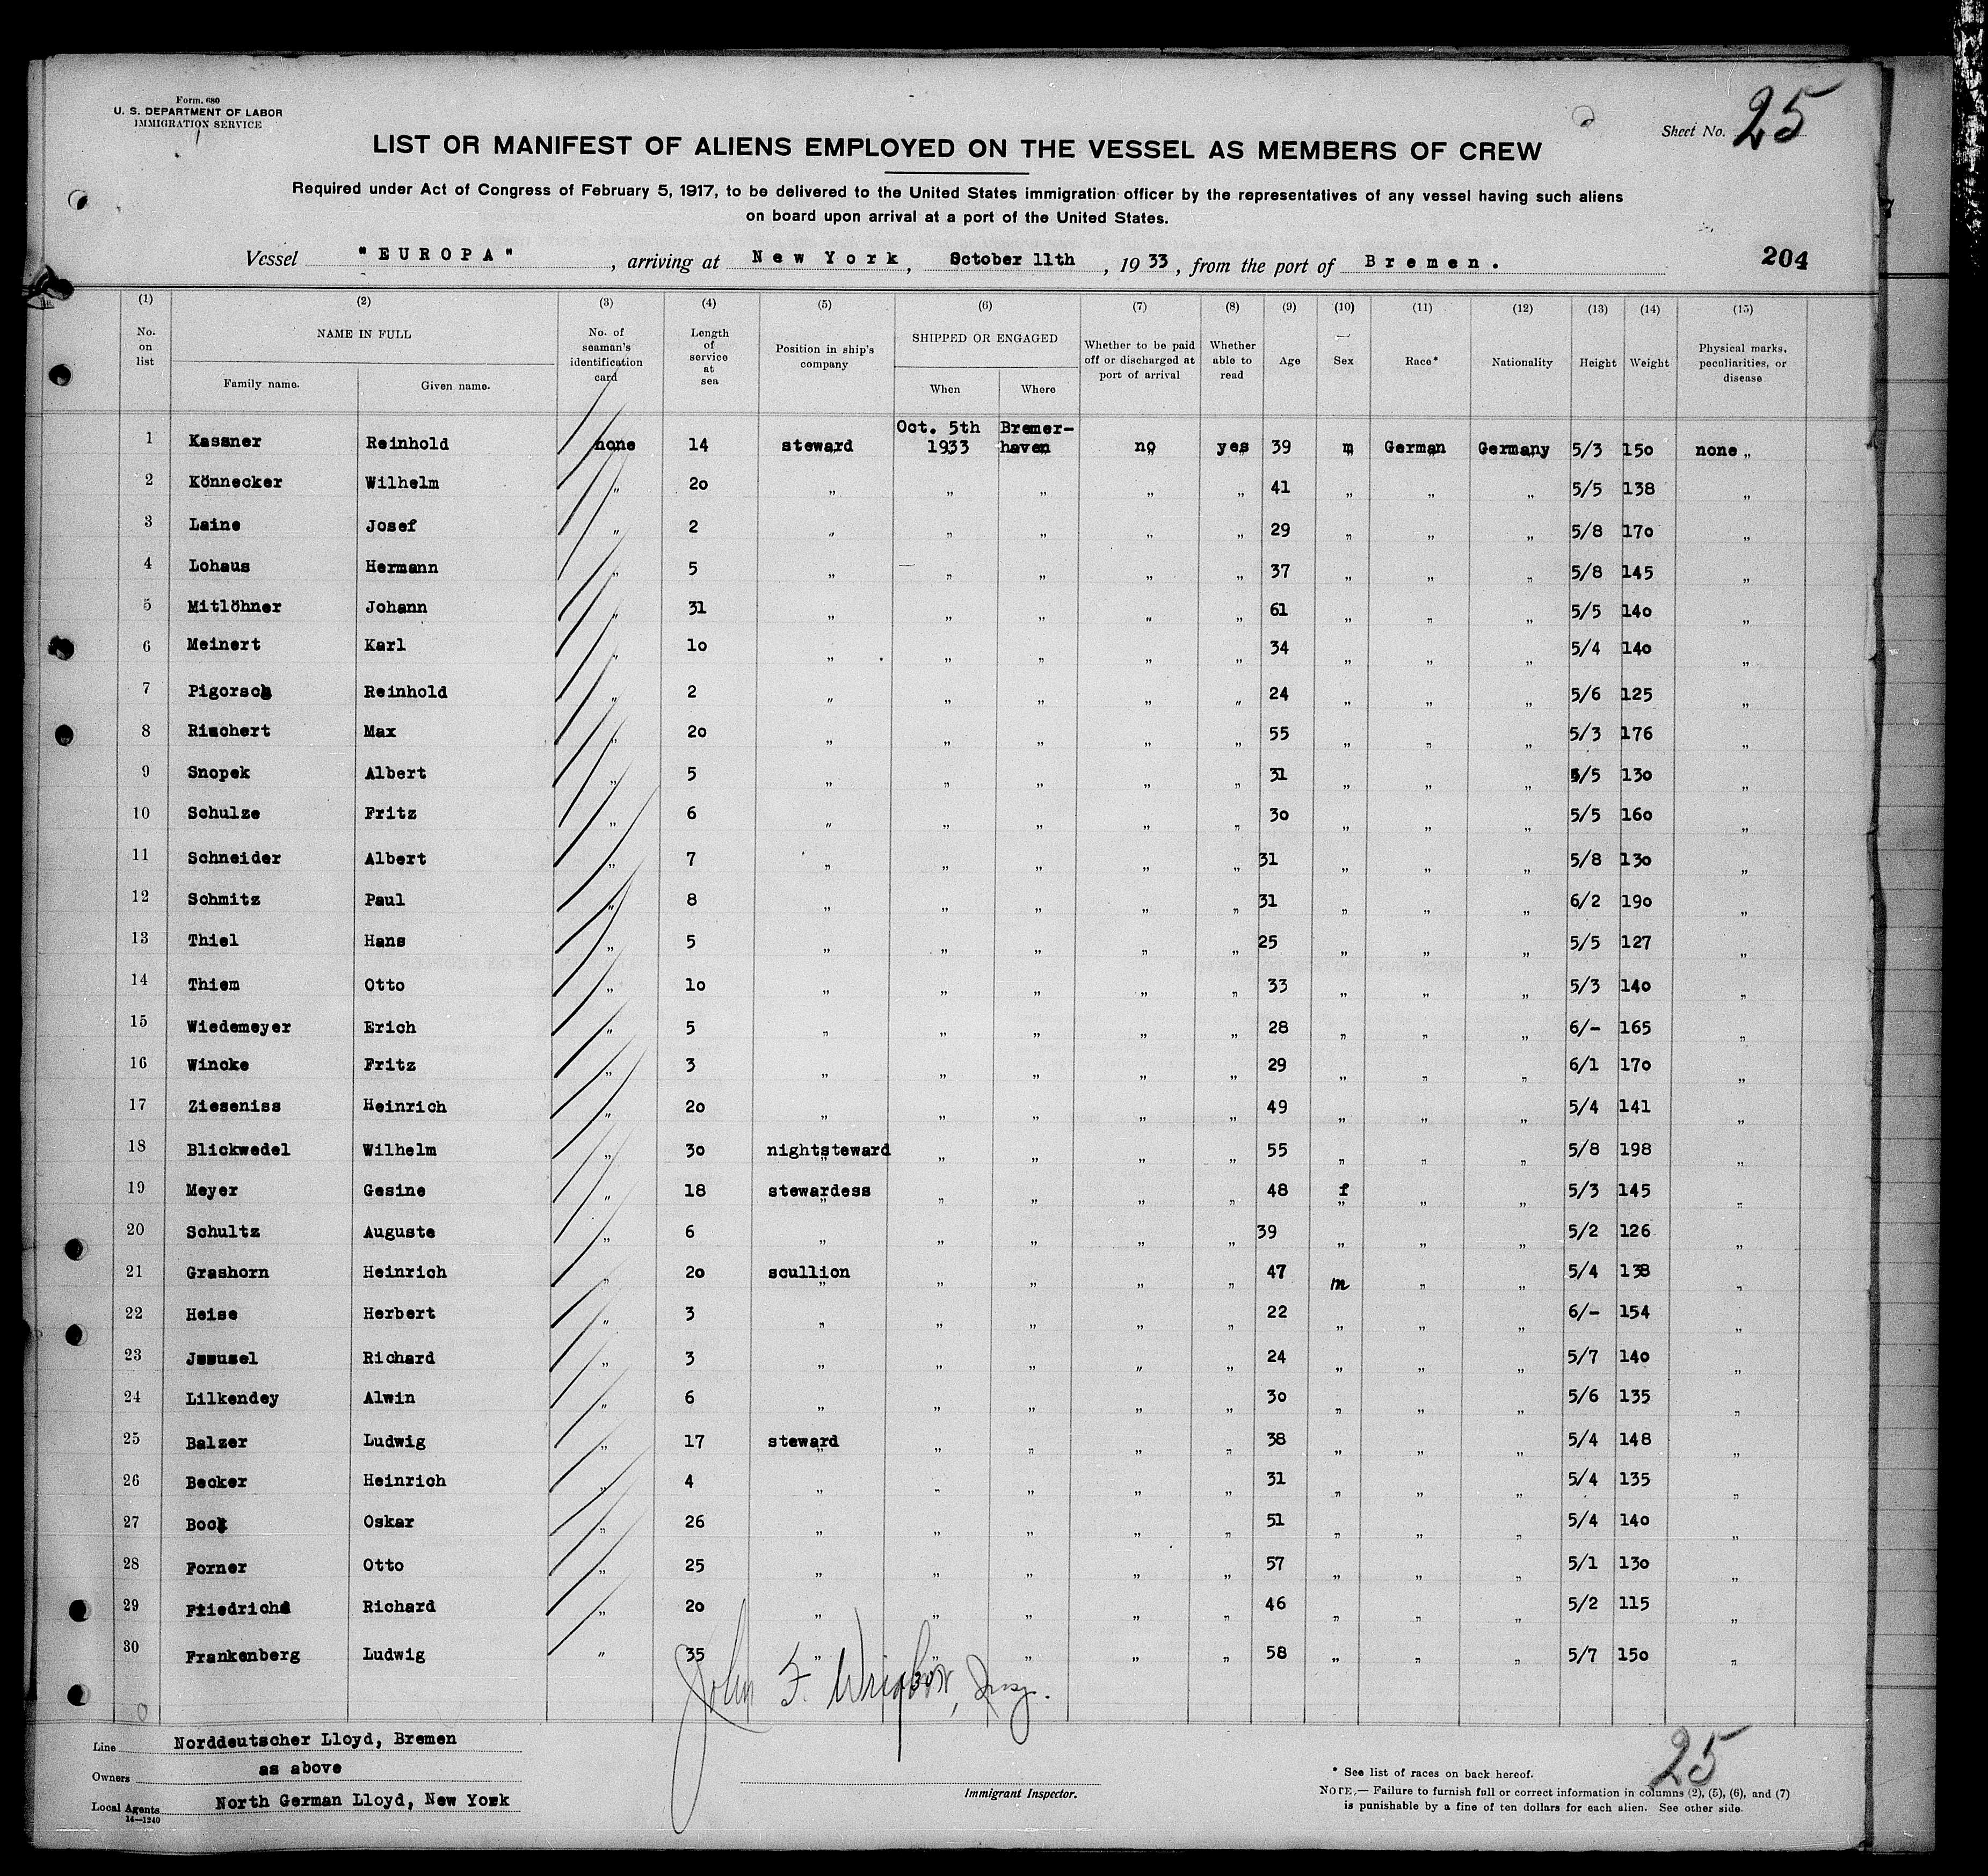 Form. 680
U. S. DEPARTMENT OF LABOR
IMMIGRATION SERVICE
Sheet No. 25
LIST OR MANIFEST OF ALIENS EMPLOYED ON THE VESSEL AS MEMBERS OF CREW
Required under Act of Congress of February 5, 1917, to be delivered to the United States immigration officer by the representatives of any vessel having such aliens
on board upon arrival at a port of the United States.
Vessel "EUROPA", arriving at New York, October 11th, 1933, from the port of Bremen. 204
(1) (2) (3) (4) (5) (6) (7) (8) (9) (10) (11) (12) (13) (14) (15)
No. on list NAME IN FULL Family name. Given name. No. of seaman's identification card Length of service at sea Position in ship's company SHIPPED OR ENGAGED When Where Whether to be paid off or discharged at port of arrival Whether able to read Age Sex Race* Nationality Height Weight Physical marks, peculiarities, or disease
1 Kassner Reinhold none 14 steward Oct. 5th 1933 Bremerhaven no yes 39 m German Germany 5/3 150 none „
2 Könnecker Wilhelm „ 20 „ „ „ „ „ 41 „ „ „ 5/5 138 „
3 Laine Josef „ 2 „ „ „ „ „ 29 „ „ „ 5/8 170 „
4 Lohaus Hermann „ 5 „ „ „ „ „ 37 „ „ „ 5/8 145 „
5 Mitlöhner Johann „ 31 „ „ „ „ „ 61 „ „ „ 5/5 140 „
6 Meinert Karl „ 10 „ „ „ „ „ 34 „ „ „ 5/4 140 „
7 Pigorsch Reinhold „ 2 „ „ „ „ „ 24 „ „ „ 5/6 125 „
8 Rischert Max „ 20 „ „ „ „ „ 55 „ „ „ 5/3 176 „
9 Snopek Albert „ 5 „ „ „ „ „ 31 „ „ „ 5/5 130 „
10 Schulze Fritz „ 6 „ „ „ „ „ 30 „ „ „ 5/5 160 „
11 Schneider Albert „ 7 „ „ „ „ „ 31 „ „ „ 5/8 130 „
12 Schmitz Paul „ 8 „ „ „ „ „ 31 „ „ „ 6/2 190 „
13 Thiel Hans „ 5 „ „ „ „ „ 25 „ „ „ 5/5 127 „
14 Thiem Otto „ 10 „ „ „ „ „ 33 „ „ „ 5/3 140 „
15 Wiedemeyer Erich „ 5 „ „ „ „ „ 28 „ „ „ 6/- 165 „
16 Wincke Fritz „ 3 „ „ „ „ „ 29 „ „ „ 6/1 170 „
17 Zieseniss Heinrich „ 20 „ „ „ „ „ 49 „ „ „ 5/4 141 „
18 Blickwedel Wilhelm „ 30 nightsteward „ „ „ „ 55 „ „ „ 5/8 198 „
19 Meyer Gesine „ 18 stewardess „ „ „ „ 48 f „ „ 5/3 145 „
20 Schultz Auguste „ 6 „ „ „ „ „ 39 „ „ „ 5/2 126 „
21 Grashorn Heinrich „ 20 scullion „ „ „ „ 47 m „ „ 5/4 138 „
22 Heise Herbert „ 3 „ „ „ „ „ 22 „ „ „ 6/- 154 „
23 Richard „ 3 „ „ „ „ „ 24 „ „ „ 5/7 140 „
24 Lilkendey Alwin „ 6 „ „ „ „ „ 30 „ „ „ 5/6 135 „
25 Balzer Ludwig „ 17 steward „ „ „ „ 38 „ „ „ 5/4 148 „
26 Becker Heinrich „ 4 „ „ „ „ „ 31 „ „ „ 5/4 135 „
27 Oskar „ 26 „ „ „ „ „ 51 „ „ „ 5/4 140 „
28 Forner Otto „ 25 „ „ „ „ „ 57 „ „ „ 5/1 130 „
29 Friedrichs Richard „ 20 „ „ „ „ „ 46 „ „ „ 5/2 115 „
30 Frankenberg Ludwig „ 35 „ „ „ „ „ 58 „ „ „ 5/7 150 „
John F.
Line Norddeutscher Lloyd, Bremen
Owners as above
Local Agents North German Lloyd, New York
14—1240
Immigrant Inspector.
25
* See list of races on back hereof.
NOTE.— Failure to furnish full or correct information in columns (2), (5), (6), and (7)
is punishable by a fine of ten dollars for each alien. See other side.